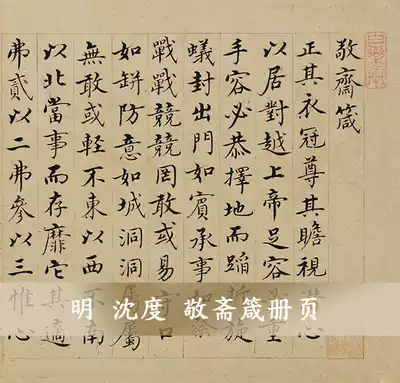 敬齋箴
正其衣冠尊其瞻視潛心
以居對越上帝足容必重
手容必恭擇地而蹈折旋
蟻封出門如賓承事如祭
戰戰兢兢罔敢或易守口
如缾防意如城洞洞屬屬
無敢或輕不東以西不南
以北當事而存靡它其適
弗貳以二弗參以三惟心
明 沈度 敬斋箴册页